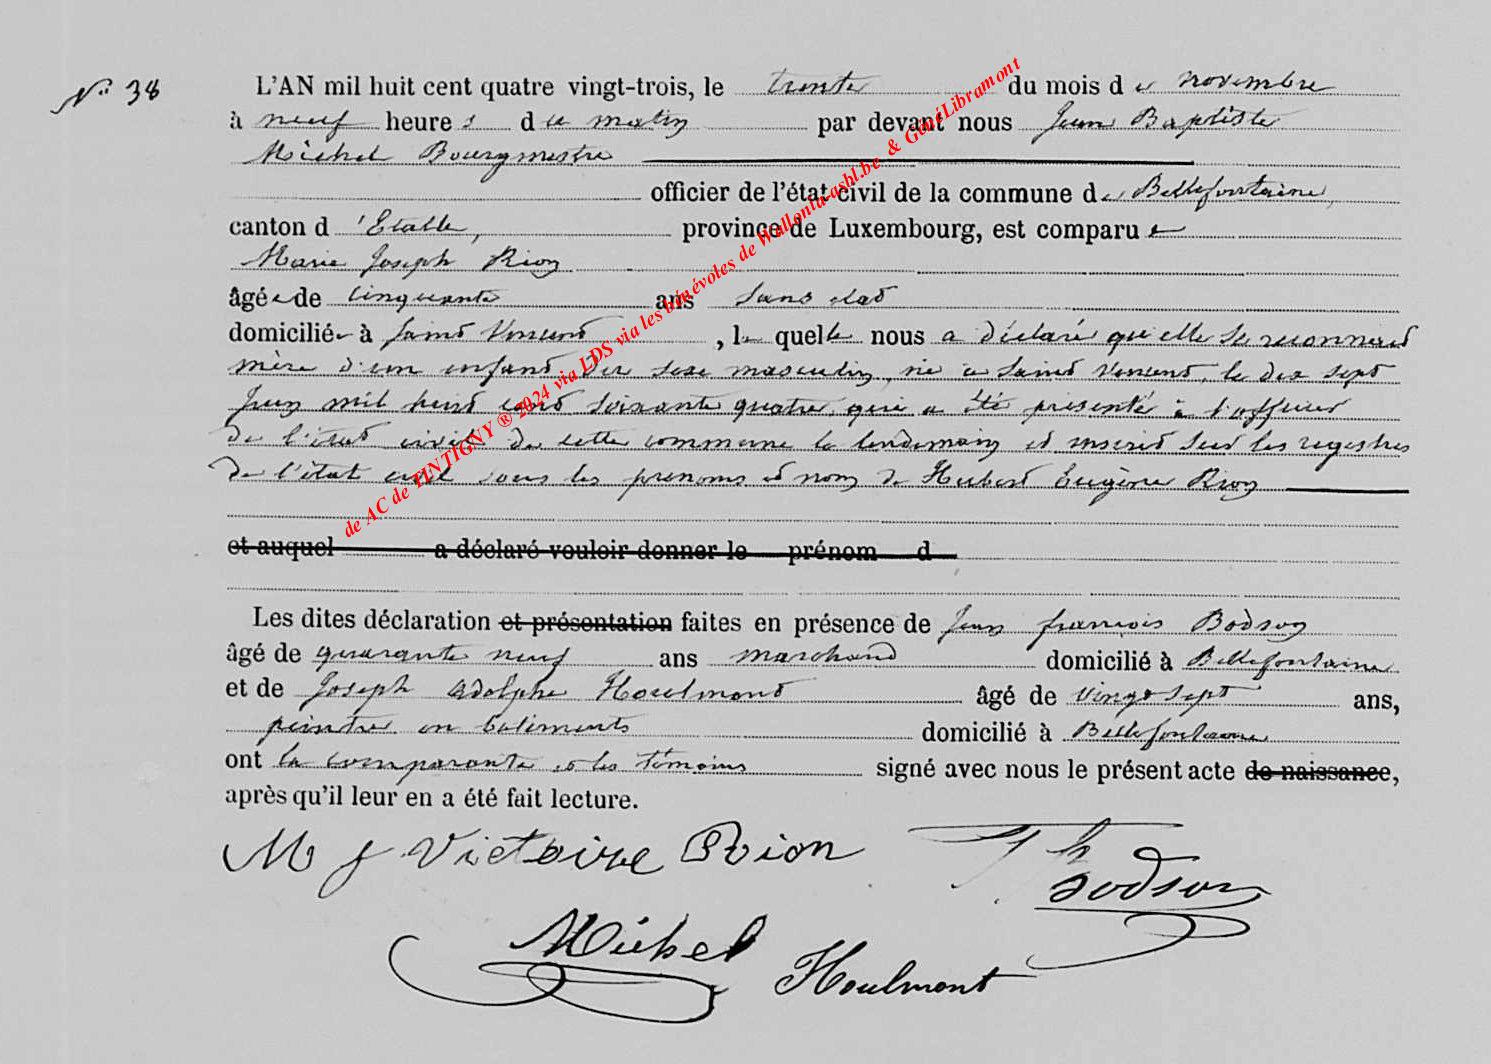 N° 38
L'AN mil huit cent quatre vingt-trois, le trente du mois de novembre
à neuf heures du matin par devant nous Jean Baptiste
Michel Bourgmestre
officier de l'état civil de la commune de Bellefontaine,
canton d'Etalle, province de Luxembourg, est comparue
Marie Joseph Rion
âgée de cinquante ans sans état
domiciliée à Saint Vincent, laquelle nous a déclaré qu'elle se reconnait
mère d'un enfant du sexe masculin, né à Saint Vincent, le dix sept
Juin mil huit cent soixante quatre, qui a été présenté à l'officier
de l'état civil de cette commune le lendemain et inscrit sur les registres
de l'état civil sous les prénoms et nom de Hubert Eugène Rion
et auquel a déclaré vouloir donner le prénom d
Les dites déclaration et présentation faites en présence de Jean françois Bodson
âgé de quarante neuf ans marchand domicilié à Bellefontaine
et de Joseph Adolphe Houlmont âgé de vingt sept ans,
peintre en batiments domicilié à Bellefontaine
ont la comparante et les témoins signé avec nous le présent acte de naissance,
après qu'il leur en a été fait lecture.
M J Victoire Rion Bodson
Michel Houlmont
de AC de TINTIGNY ® 2024 via LDS via les bénévoles de Wallonia-asbl.be & GénéLibramont